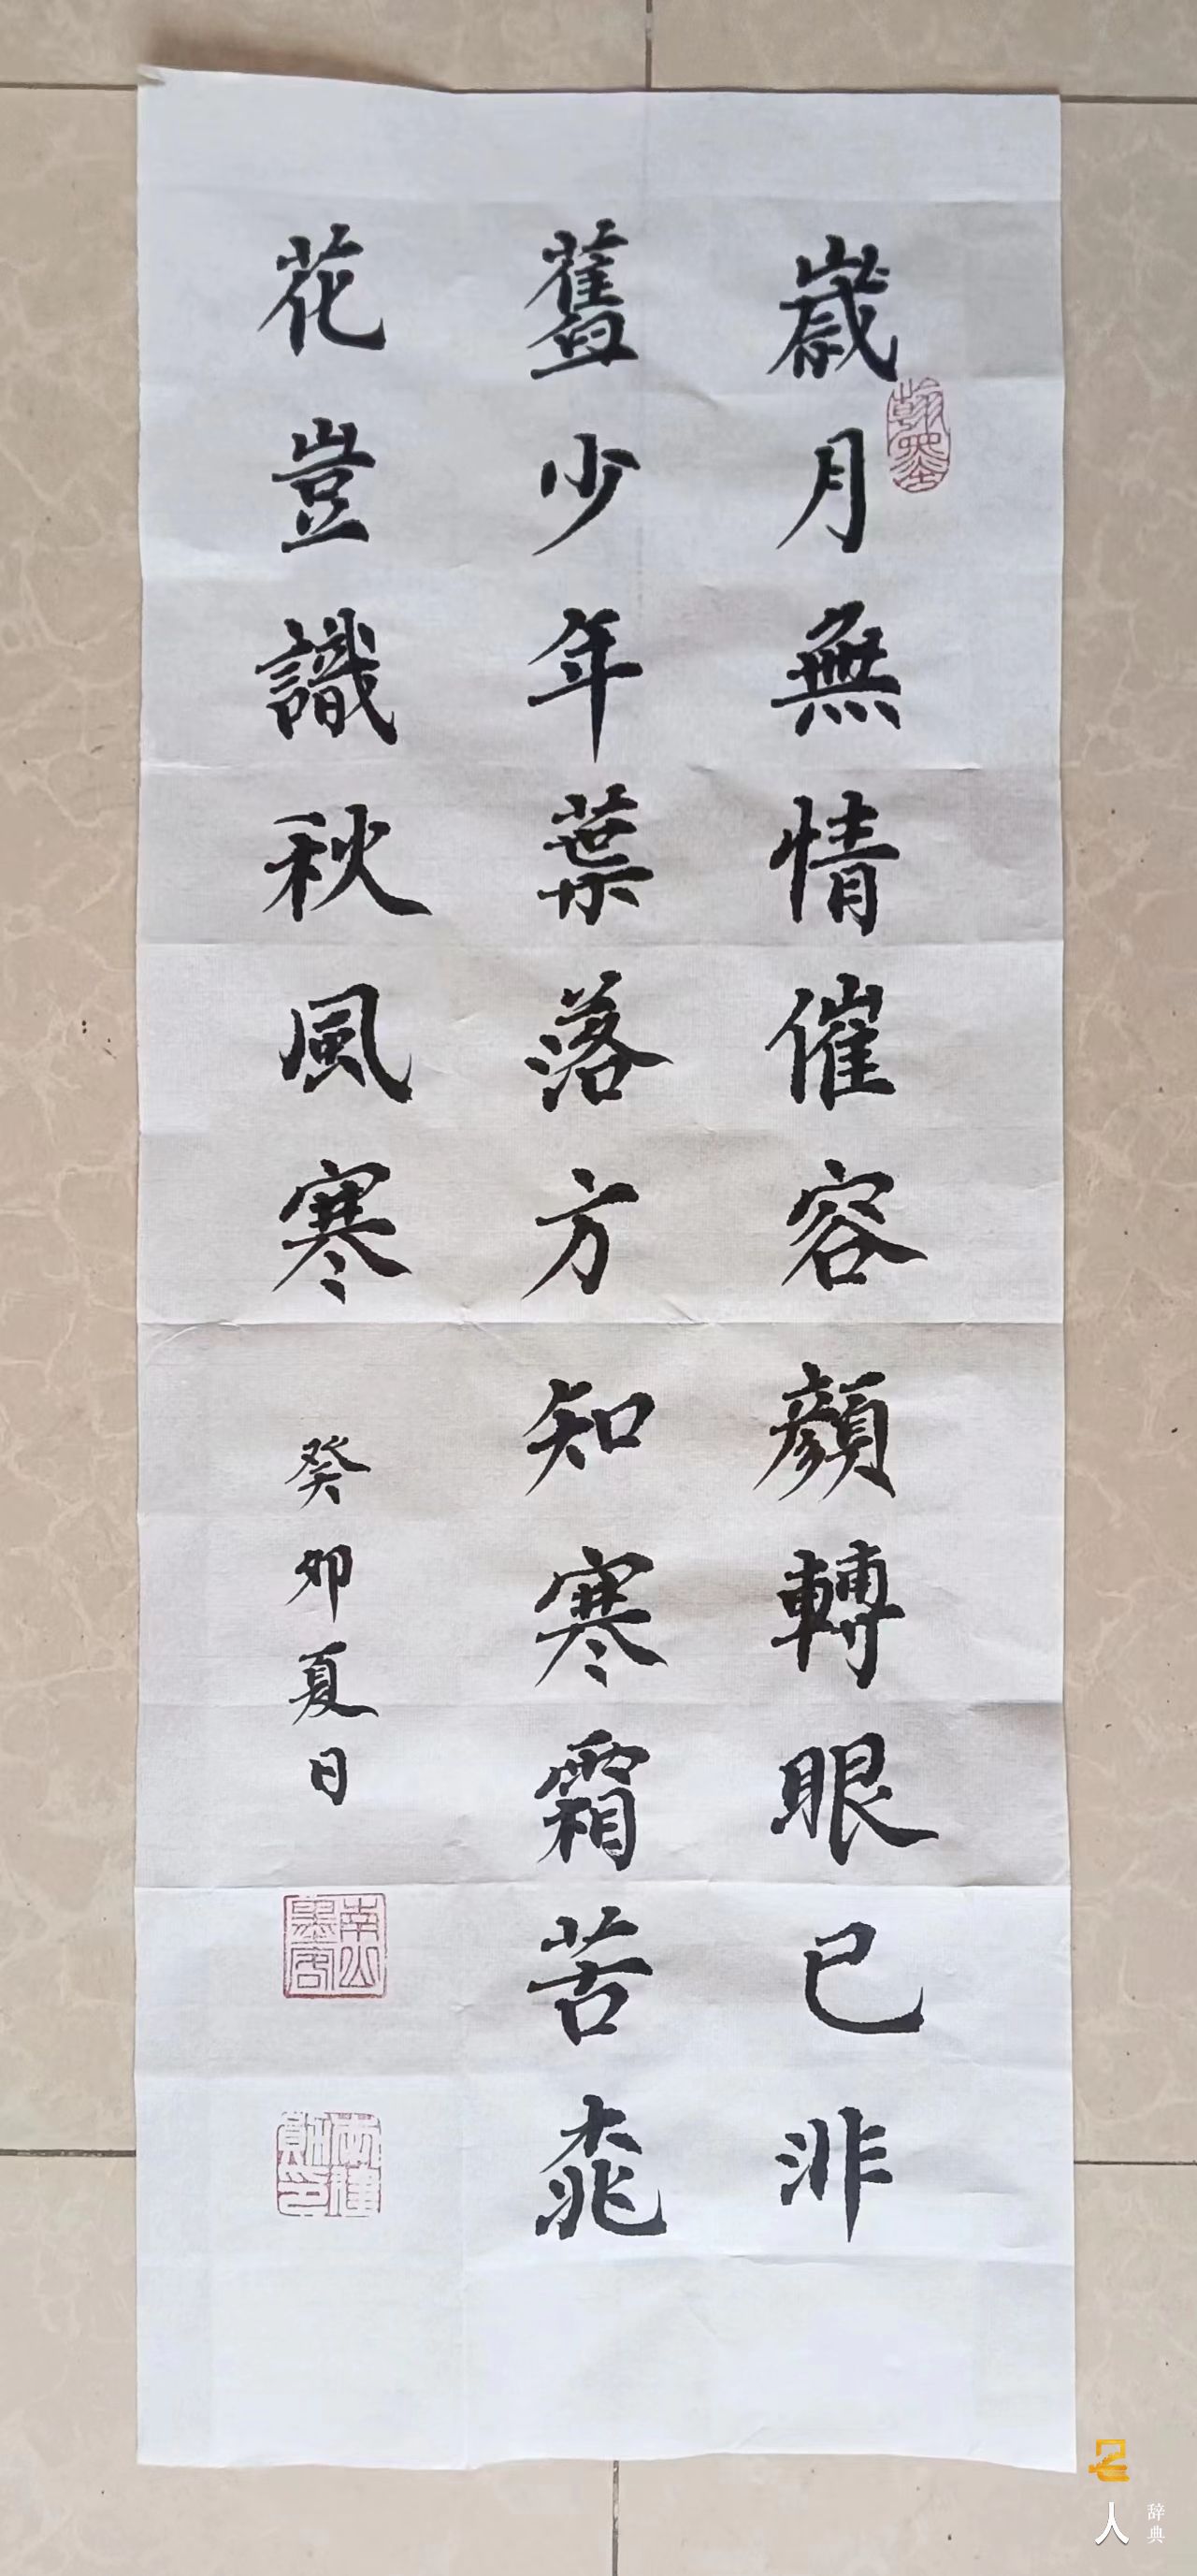 歲月無情催容顏轉眼已非
舊少年葉落方知寒霜苦桃
花豈識秋風寒
癸卯夏日
翰墨
南山墨客
人
辞典